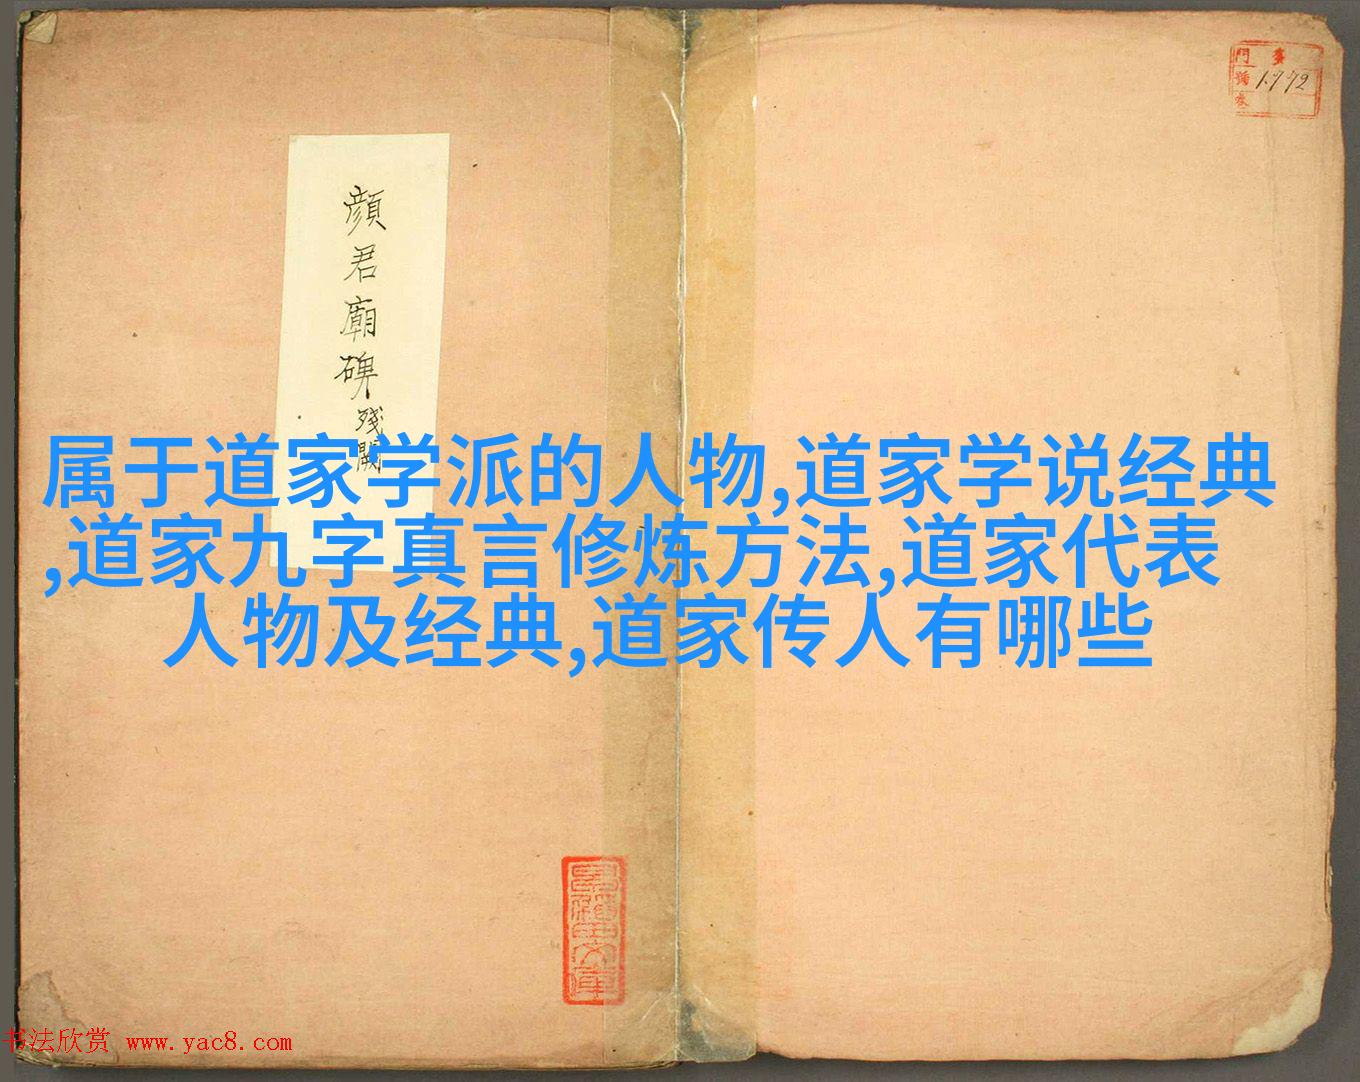 顔君廟碑残闕
門 彙
號 1772
巻
属于道家学派的人物,道家学说经典
,道家九字真言修炼方法,道家代表
人物及经典,道家传人有哪些
书法欣赏 www.yac8.com